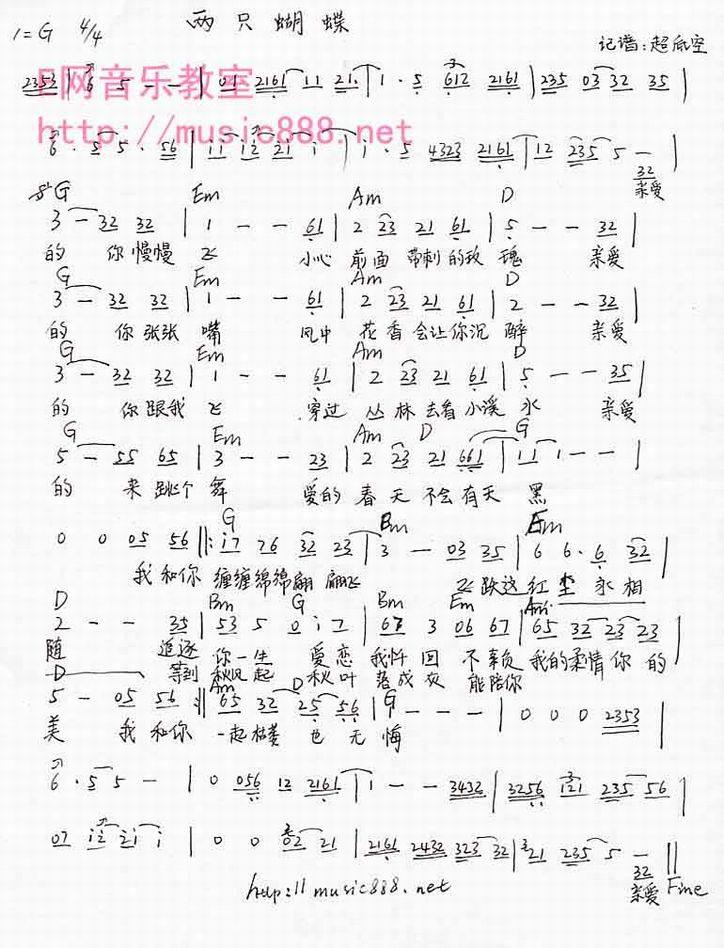 两只蝴蝶
1=G 4/4
记谱:超低空
网音乐教室
http://music888.net
2353 | 6 · 5 5 — — | 01 2161 11 21· | 1 · 5 612 2161 | 235 03 32 35 |
6 · 5 5 · 56 | 11 12 21 1 | 1 · 5 4323 2161 | 12 235 5 — 32 |
亲爱
G Em Am D
3 — 32 32 | 1 — — 61 | 2 23 21 61 | 5 — — 32 |
的 你慢慢 飞 小心 前面 带刺的玫 瑰 亲爱
G Em Am D
3 — 32 32 | 1 — — 61 | 2 23 21 61 | 2 — — 32 |
的 你张张 嘴 风中 花香会让你沉 醉 亲爱
G Em Am D
3 — 32 32 | 1 — — 61 | 2 23 21 61 | 5 — — 35 |
的 你跟我 飞 穿过 丛林去看小溪 水 亲爱
G Em Am D G
5 — 55 65 | 3 — — 23 | 2 23 21 661 | 11 1 — — |
的 来跳个 舞 爱的 春天不会有天 黑
G Bm Em
0 0 05 56 ||: i7 76 32 23 | 3 — 03 35 | 6 6· 6 32 |
我和你 缠缠绵绵翩 翩飞 飞跃这红尘 永相
D Bm G Bm Em Am
2 — — 35 | 53 5 0 i 7 | 67 3 06 67 | 65 32 23 23 |
随 追逐 你一生 爱恋 我忏 回 不辜负 我的柔情你的
等到 秋风起 秋叶 落成灰 能陪你
D Am D G
5 — 05 56 :|| 65 32 25 56 | 1 — — — | 0 0 0 2353 |
美 我和你 一起枯萎 也 无 悔
6 · 5 5 — | 0 056 12 2161 | 1 — — 3432 | 3256 121 235 56 |
07 i2 2i i | 0 0 02 21 | 2161 2432 323 32 | 21 235 5 — 32 ||
亲爱 Fine
http://music888.net